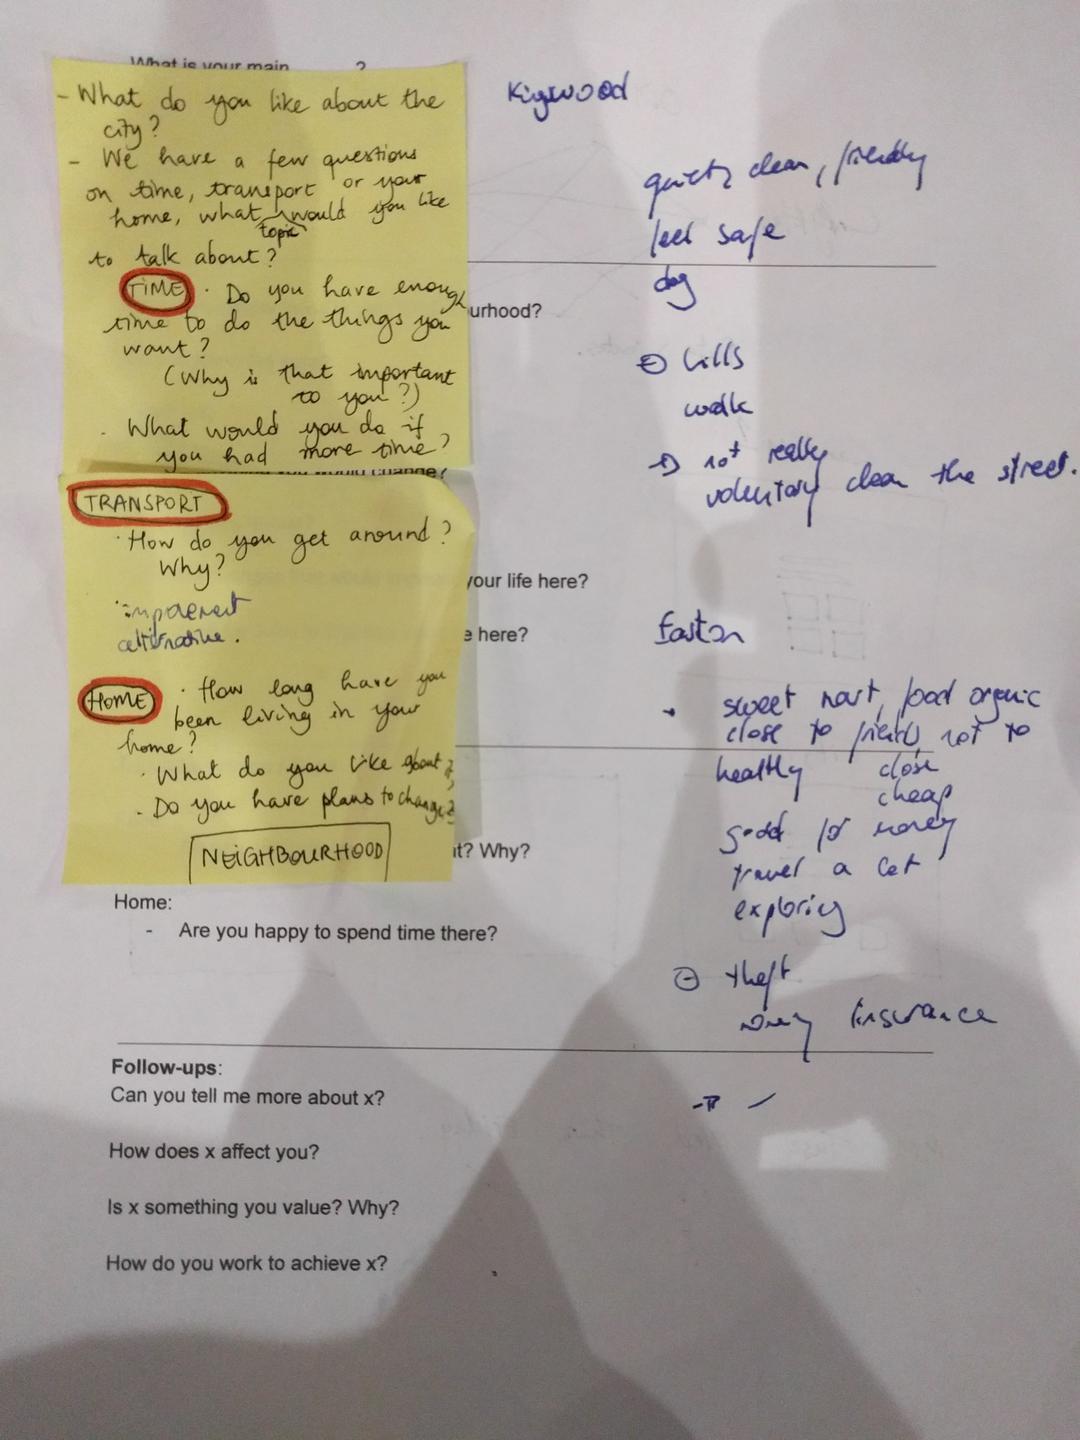 What is your main ?
- What do you like about the
city?
- We have a few questions
on time, transport or your
home, what would you like
topic
to talk about?
TIME · Do you have enough
time to do the things you
want?
(Why is that important
to you?)
· What would you do if
you had more time?
change?
TRANSPORT
· How do you get around?
Why?
alternative.
HOME · How long have you
been living in your
home?
· What do you like about it?
· Do you have plans to change?
NEIGHBOURHOOD
urhood?
your life here?
e here?
it? Why?
Home:
- Are you happy to spend time there?
Follow-ups:
Can you tell me more about x?
How does x affect you?
Is x something you value? Why?
How do you work to achieve x?
Kigswood
clean, friendly
feel safe
dog
hills
walk
not really
voluntary clean the street.
Easton
sweet mart, food organic
close to friends, not to
healthy close
cheap
good for money
travel a lot
exploring
theft
insurance